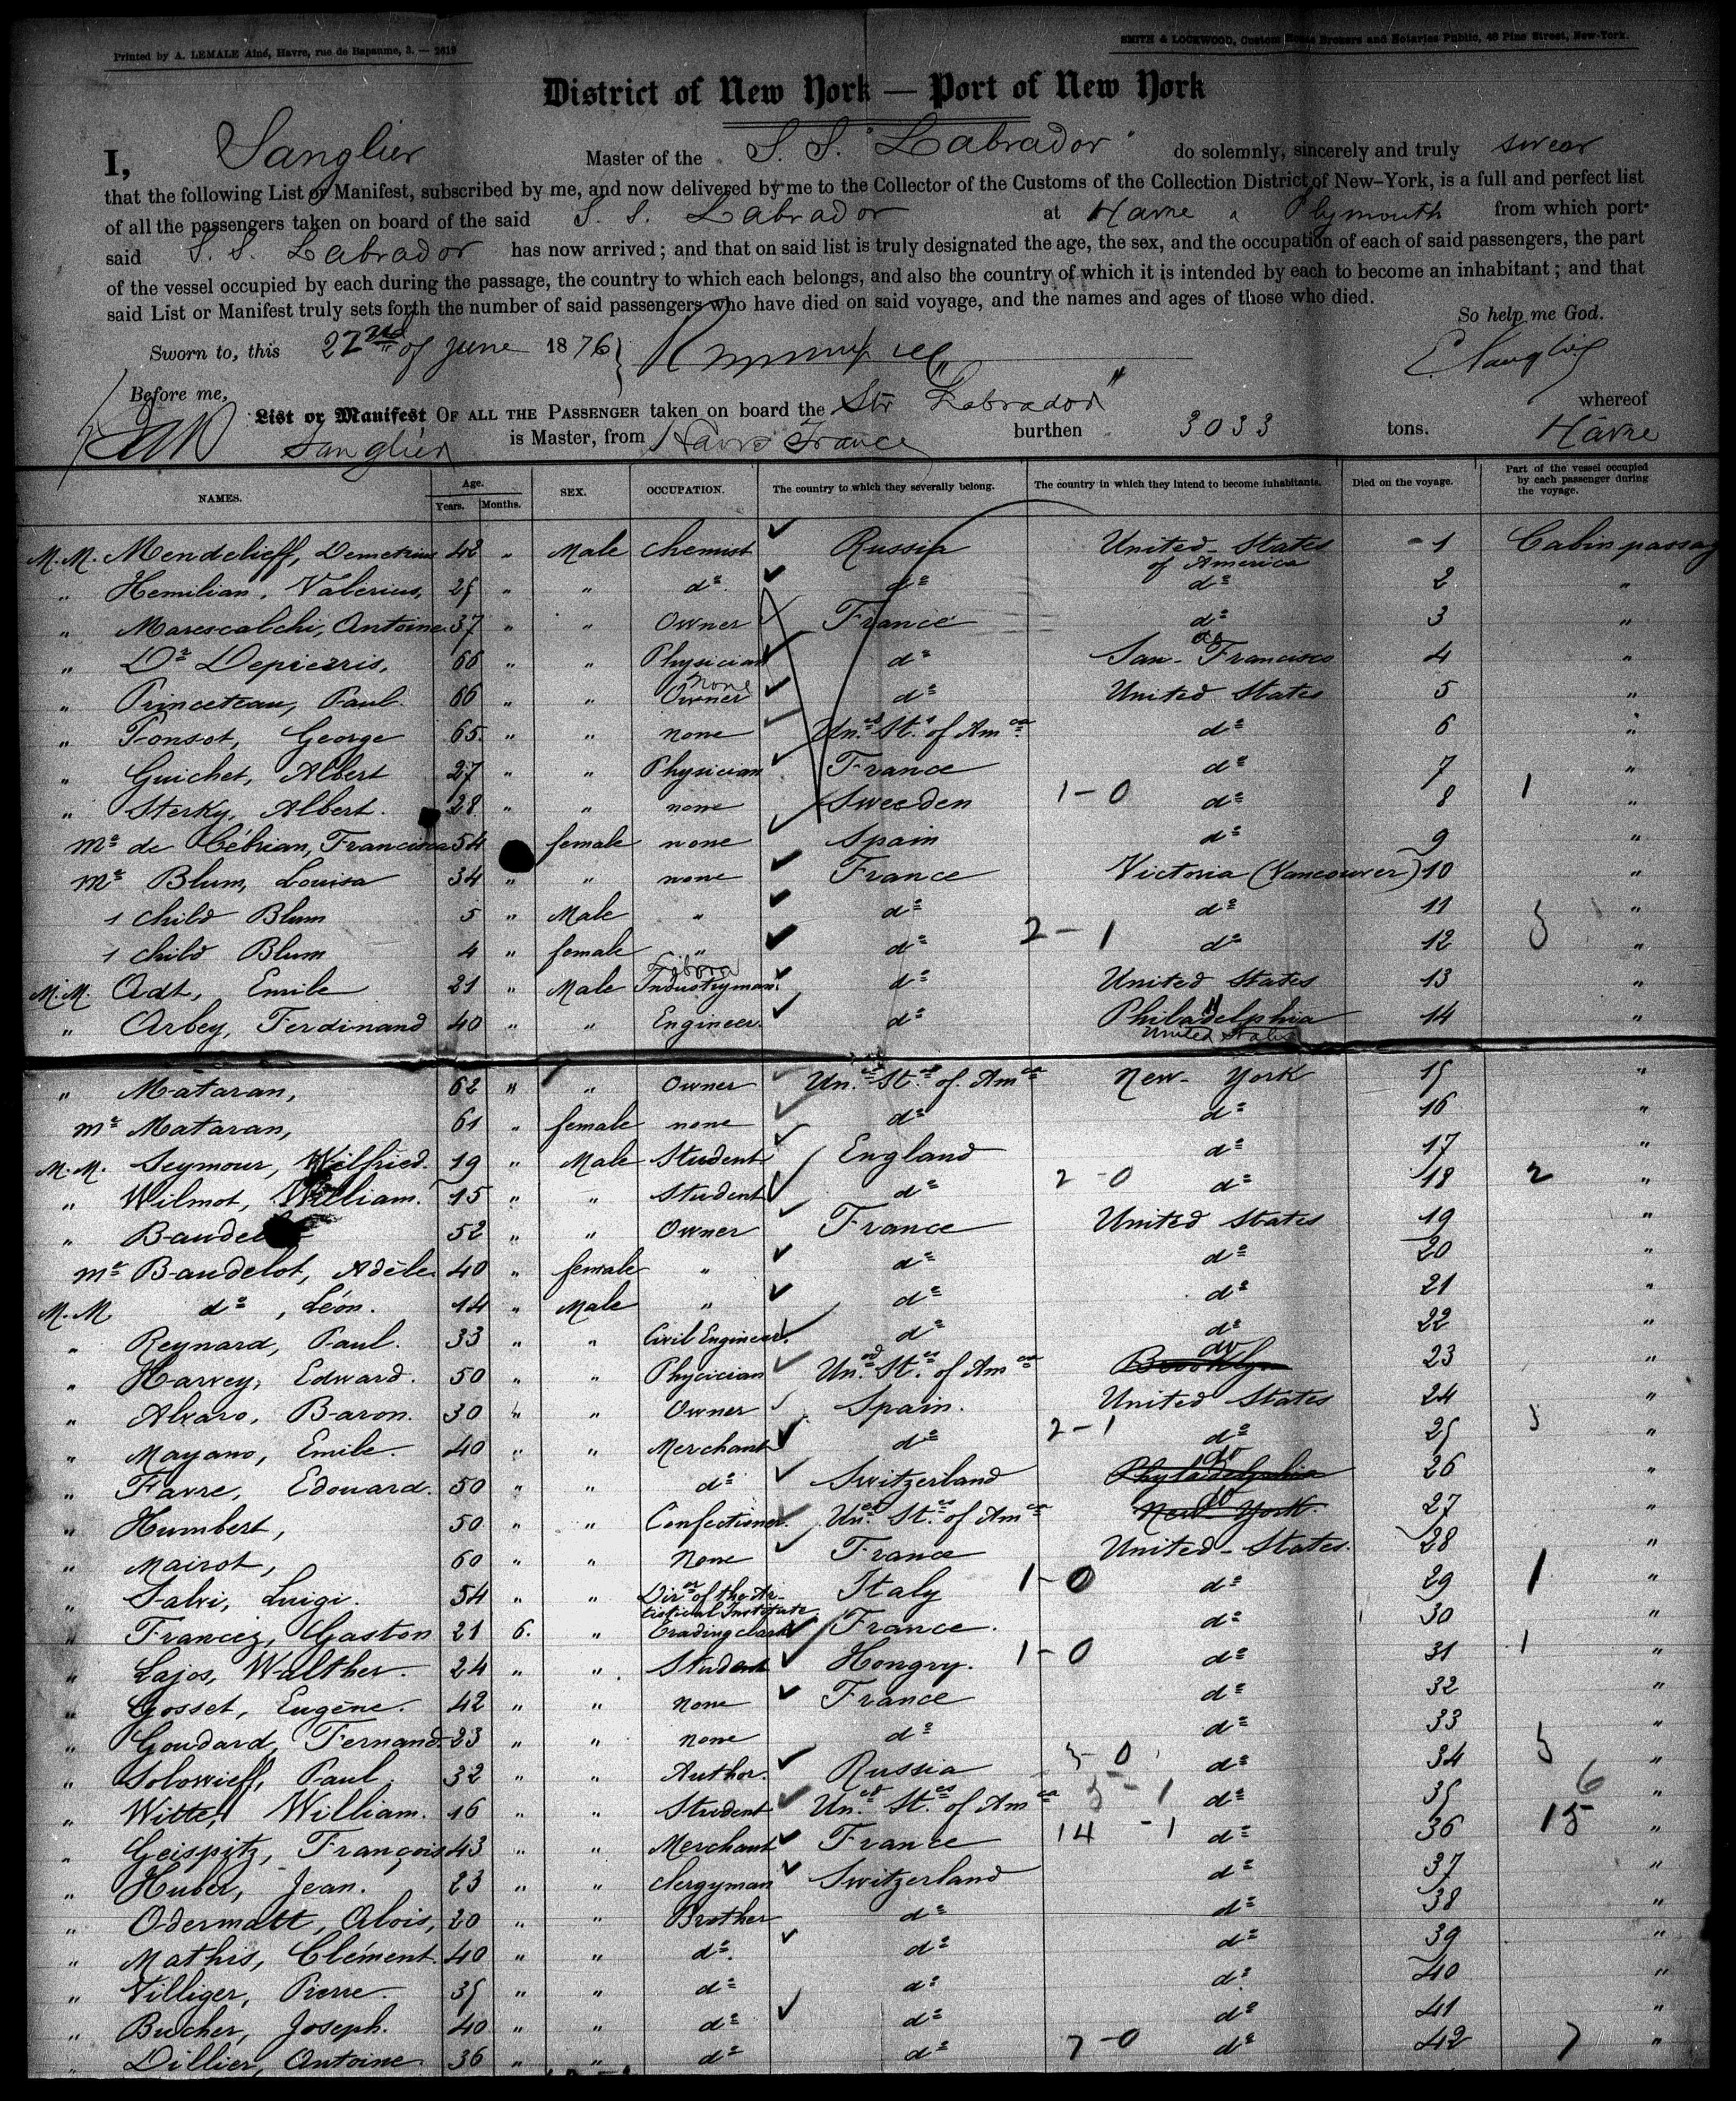 Printed by A. LEMALE Aîné, Havre, rue de Bapaume, 3. — 2619
SMITH & LOCKWOOD, Custom House Brokers and Notaries Public, 48 Pine Street, New-York.
District of New York — Port of New York
I, Sanglier Master of the S. S. "Labrador" do solemnly, sincerely and truly swear
that the following List or Manifest, subscribed by me, and now delivered by me to the Collector of the Customs of the Collection District of New-York, is a full and perfect list
of all the passengers taken on board of the said S. S. Labrador at Havre & Plymouth from which port
said S. S. Labrador has now arrived; and that on said list is truly designated the age, the sex, and the occupation of each of said passengers, the part
of the vessel occupied by each during the passage, the country to which each belongs, and also the country of which it is intended by each to become an inhabitant; and that
said List or Manifest truly sets forth the number of said passengers who have died on said voyage, and the names and ages of those who died.
So help me God.
Sworn to, this 22nd of June 1876
E Sanglier
Before me,
List or Manifest OF ALL THE PASSENGER taken on board the Str "Labrador" whereof
Sanglier is Master, from Havre France burthen 3033 tons. Havre
NAMES. Age. Years. Months. SEX. OCCUPATION. The country to which they severally belong. The country in which they intend to become inhabitants. Died on the voyage. Part of the vessel occupied by each passenger during the voyage.
M.M. Mendelieff, Demetrius 42 " Male Chemist Russia United-States of America 1 Cabin passag
" Hemilian, Valerius, 25 " " dº dº dº 2 "
" Marescalchi, Antoine 37 " " Owner France dº 3 "
" Dr Depierris, 66 " " Physician dº do San-Francisco 4 "
" Princeteau, Paul. 66 " " none Owner dº United States 5 "
" Ponsot, George 65 " " none Un.ed St.s of Amca dº 6 "
" Guichet, Albert 27 " " Physician France dº 7 "
" Sterky, Albert. 28 " " none Sweeden 1-0 dº 8 1 "
Me de Cébrian, Francisca 54 female none Spain dº 9 "
Me Blum, Louisa 34 " " none France Victoria (Vancouver) 10 "
1 child Blum 5 " Male " dº dº 11 "
1 child Blum 4 " female " dº 2-1 dº 12 3 "
M.M. Adt, Emile 21 " Male Industryman dº United States 13 "
" Arbey, Ferdinand 40 " " Engineer. dº Philadelphia United States 14 "
" Mataran, 62 " " Owner Un.ed St.es of Amca New-York 15 "
Me Mataran, 61 " female none dº dº 16 "
M.M. Seymour, Wilfried. 19 " Male Student England dº 17 "
" Wilmot, William. 15 " " Student dº 2-0 dº 18 2 "
" Baudelot 52 " " Owner France United States 19 "
Me Baudelot, Adèle 40 " female " dº dº 20 "
M.M dº, Léon. 14 " Male " dº dº 21 "
" Reynard, Paul. 33 " " Civil Engineer. dº dº 22 "
" Harvey, Edward. 50 " " Phycician Un.ed St.es of Amca Brooklyn do 23 "
" Alvaro, Baron. 30 " " Owner Spain. United States 24 "
" Mayano, Emile. 40 " " Merchant dº 2-1 dº 25 3 "
" Favre, Edouard. 50 " " dº Switzerland Phyladelphia do 26 "
" Humbert, 50 " " Confectioner. Un.ed St.es of Amca New-York do 27 "
" Mairot, 60 " " None France United-States. 28 "
" Salvi, Luigi. 54 " " Diror of the Artistical Institute Italy 1-0 dº 29 1 "
" Francez, Gaston 21 6. " Trading clerk France. dº 30 "
" Lajos, Walther. 24 " " Student Hongry. 1-0 dº 31 1 "
" Gosset, Eugène. 42 " " none France dº 32 "
" Goudard, Fernand. 23 " " none dº dº 33 "
" Solowieff, Paul. 32 " " Author. Russia 3-0 dº 34 3 "
" Witte, William. 16 " " Student Un.ed St.es of Amca 5-1 dº 35 6 "
" Geispitz, François 43 " " Merchant France 14-1 dº 36 15 "
" Huber, Jean. 23 " " Clergyman Switzerland dº 37 "
" Odermatt, Alois, 20 " " Brother dº dº 38 "
" Mathis, Clément. 40 " " dº. dº dº 39 "
" Villiger, Pierre. 35 " " dº dº dº 40 "
" Bucher, Joseph. 40 " " dº dº dº 41 "
" Dillier, Antoine 36 " " dº dº 7-0 dº 42 7 "